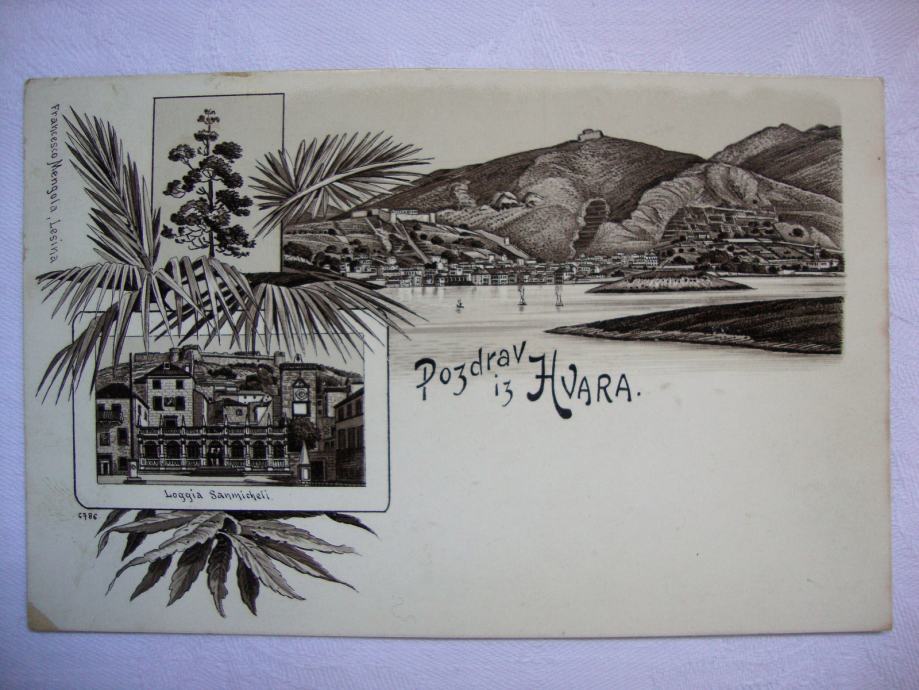 Francesco Mengola, Lesina
Pozdrav
iz HVARA.
Loggia Sanmicheli.
6786